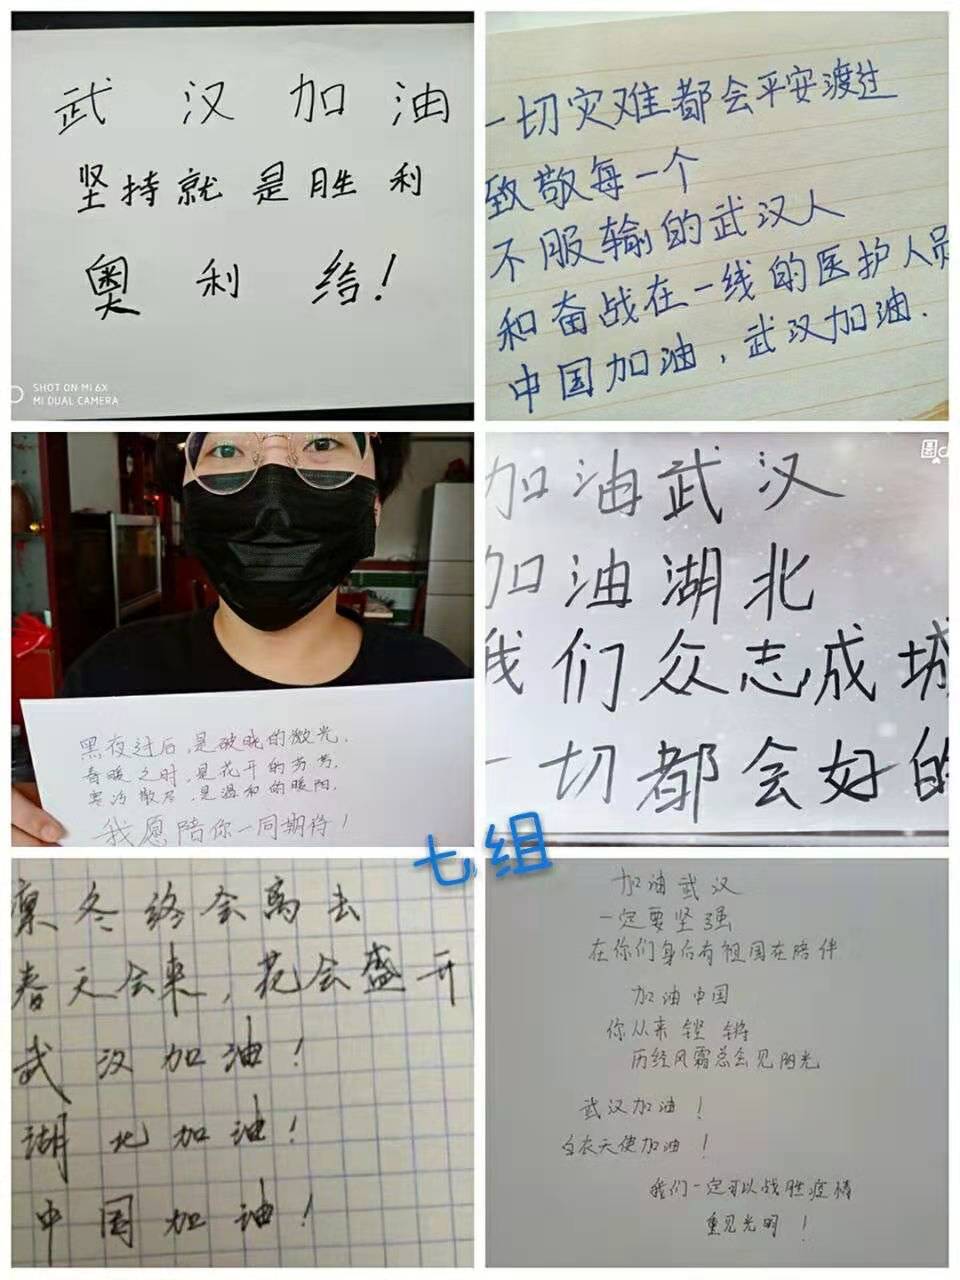 武汉加油
坚持就是胜利
奥利给!
SHOT ON MI 6X
MI DUAL CAMERA
一切灾难都会平安渡过
致敬每一个
不服输的武汉人
和奋战在一线的医护人员
中国加油,武汉加油.
黑夜过后,是破晓的微光,
春暖之时,是花开的芬芳,
寒冷散尽,是温和的暖阳,
我愿陪你一同期待!
加油武汉
加油湖北
我们众志成城
一切都会好的
七组
凛冬终会离去
春天会来,花会盛开
武汉加油!
湖北加油!
中国加油!
加油武汉
一定要坚强
在你们身后有祖国在陪伴
加油中国
你从来铿锵
历经风霜总会见阳光
武汉加油!
白衣天使加油!
我们一定可以战胜疫情
重见光明!